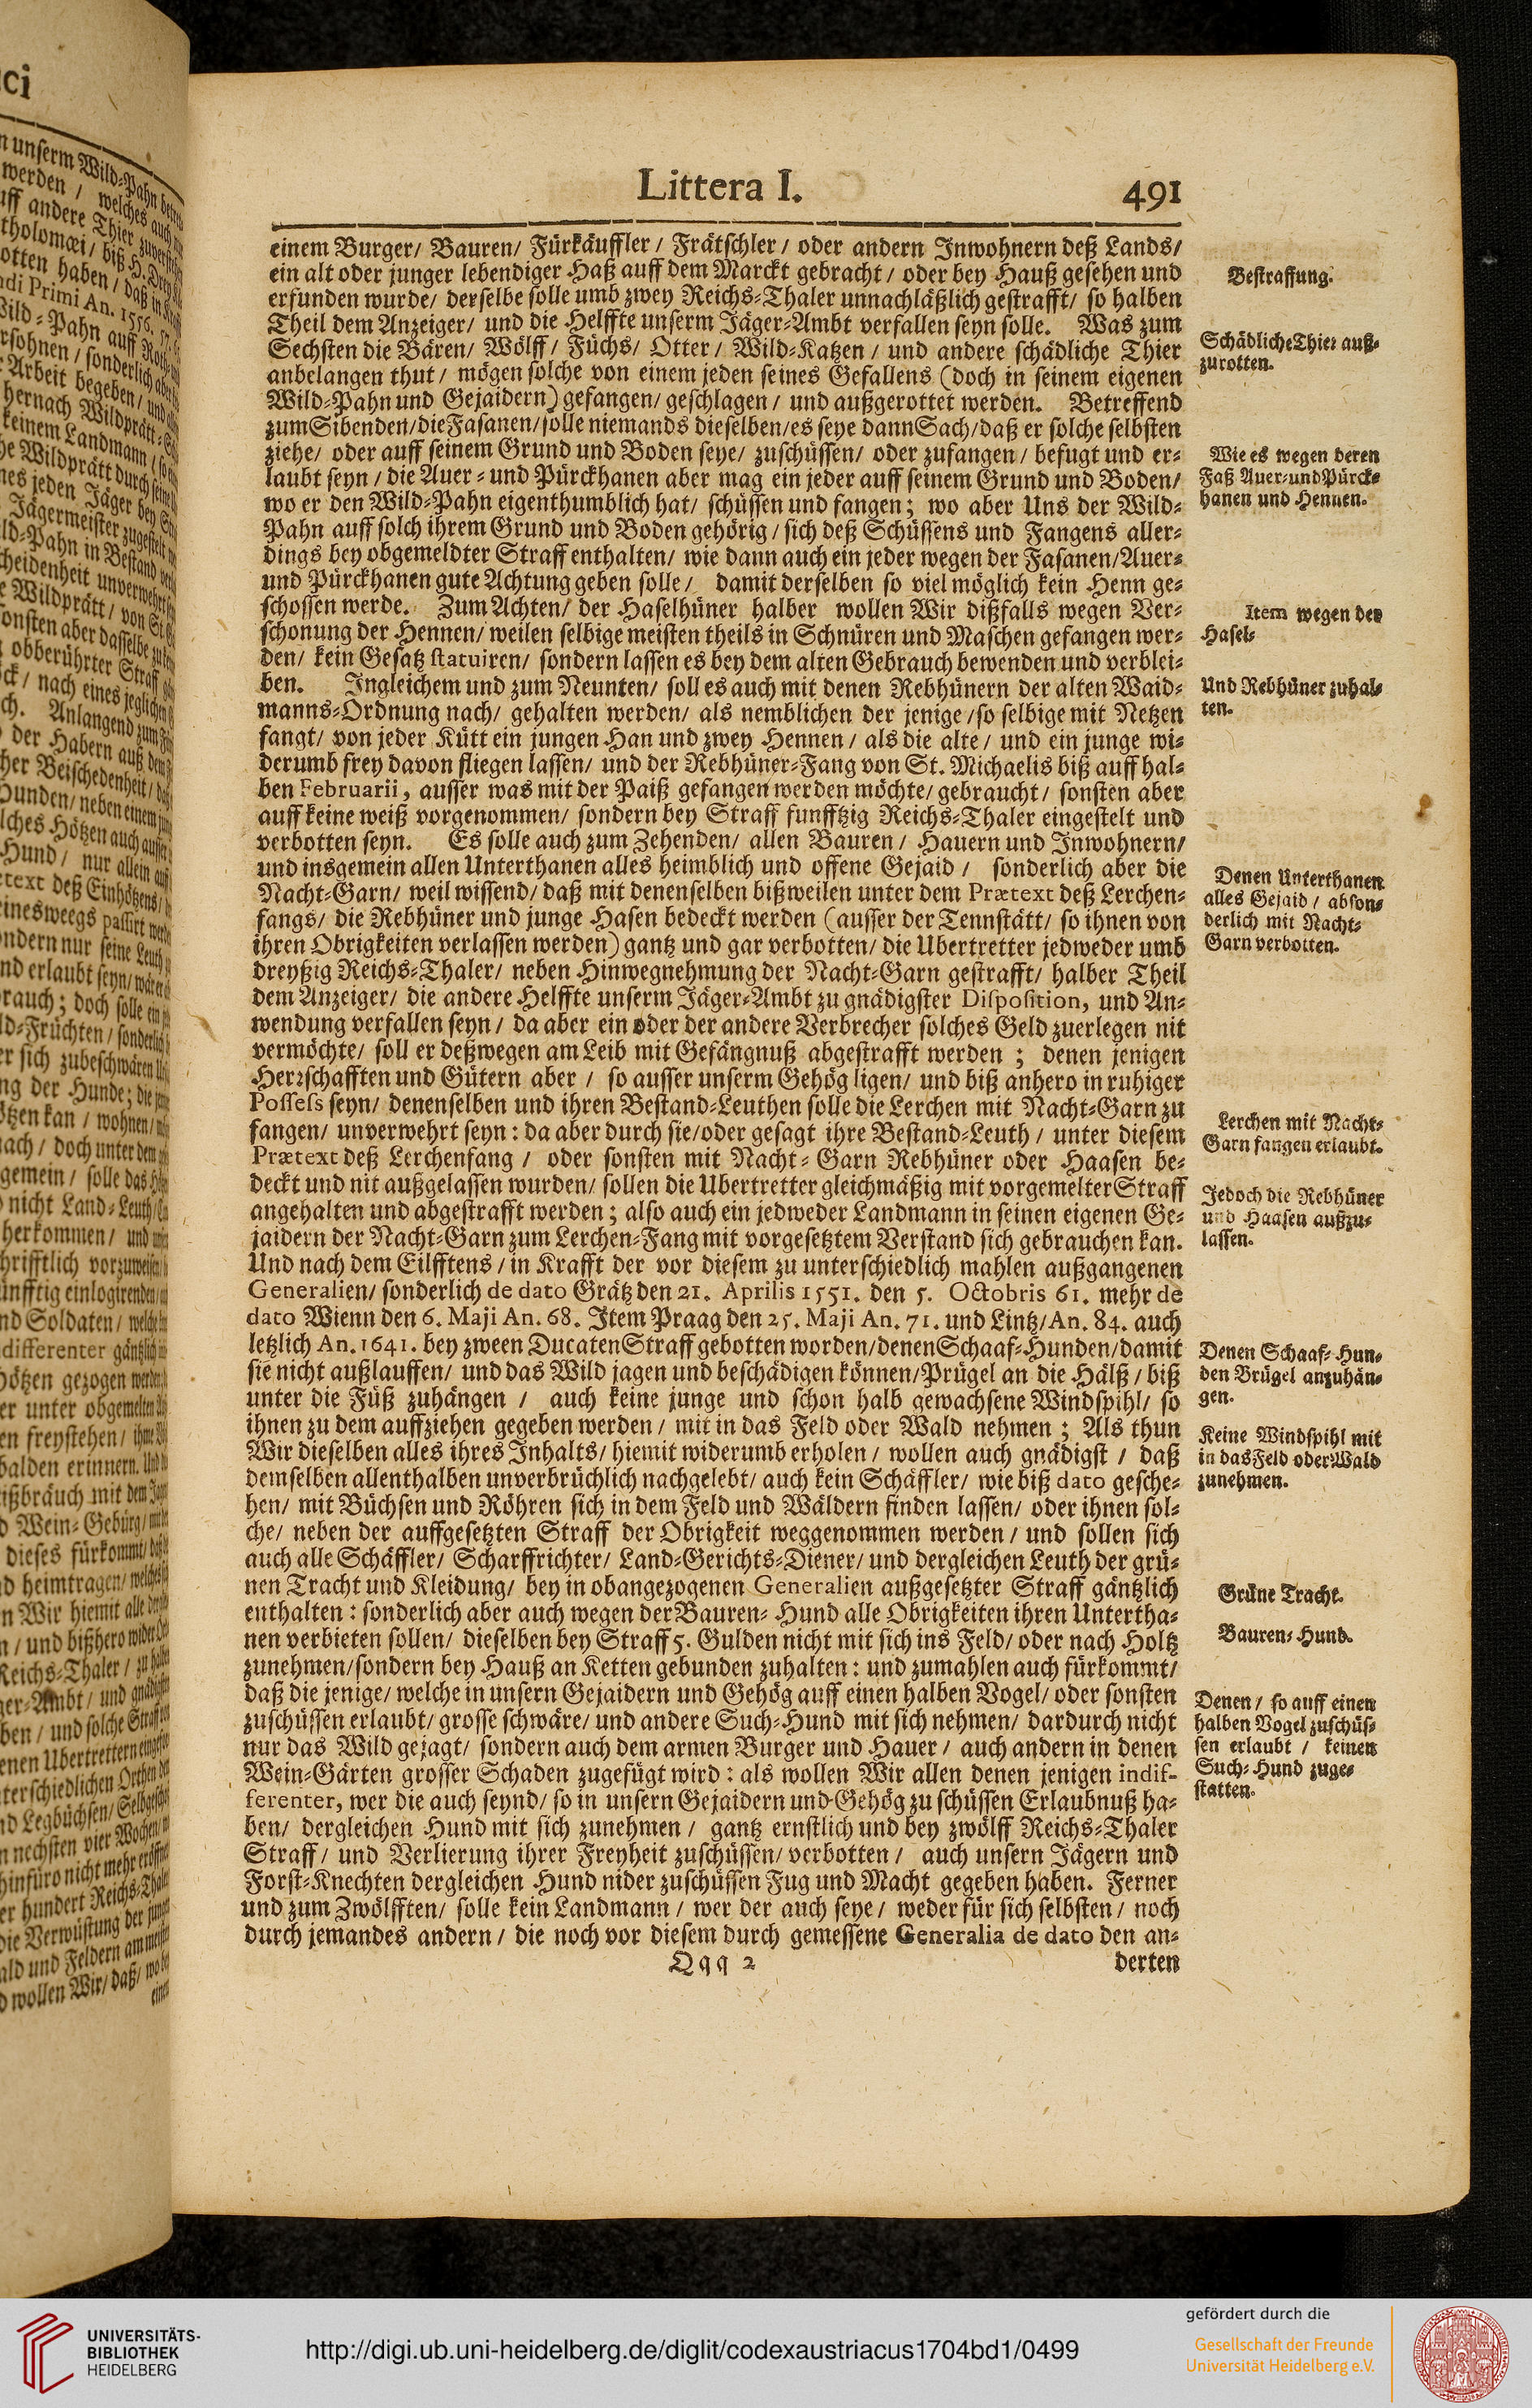 Littera I. 491
einem Burger/ Bauren/ Fürkäuffler/ Frätschler/ oder andern Inwohnern deß Lands/
ein alt oder junger lebendiger Haß auff dem Marckt gebracht/ oder bey Hauß gesehen und
erfunden wurde/ derselbe solle umb zwey Reichs-Thaler unnachläßlich gestrafft/ so halben
Theil dem Anzeiger/ und die Helffte unserm Jäger-Ambt verfallen seyn solle. Was zum
Sechsten die Bären/ Wölff/ Füchs/ Otter/ Wild-Katzen/ und andere schädliche Thier
anbelangen thut/ mögen solche von einem jeden seines Gefallens (doch in seinem eigenen
Wild-Pahn und Gejaidern) gefangen/ geschlagen/ und außgerottet werden. Betreffend
zum Sibenden/ die Fasanen/ solle niemands dieselben/ es seye dann Sach/ daß er solche selbsten
ziehe/ oder auff seinem Grund und Boden seye/ zuschüssen/ oder zufangen/ befugt und er-
laubt seyn/ die Auer- und Pürckhanen aber mag ein jeder auff seinem Grund und Boden/
wo er den Wild-Pahn eigenthumblich hat/ schüssen und fangen; wo aber Uns der Wild-
Pahn auff solch ihrem Grund und Boden gehörig/ sich deß Schüssens und Fangens aller-
dings bey obgemeldter Straff enthalten/ wie dann auch ein jeder wegen der Fasanen/ Auer-
und Pürckhanen gute Achtung geben solle/ damit derselben so viel möglich kein Henn ge-
schossen werde. Zum Achten/ der Haselhüner halber wollen Wir dißfalls wegen Ver-
schonung der Hennen/ weilen selbige meisten theils in Schnüren und Maschen gefangen wer-
den/ kein Gesatz statuiren/ sondern lassen es bey dem alten Gebrauch bewenden und verblei-
ben. Ingleichem und zum Neunten/ soll es auch mit denen Rebhünern der alten Waid-
manns-Ordnung nach/ gehalten werden/ als nemblichen der jenige/ so selbige mit Netzen
fangt/ von jeder Kütt ein jungen Han und zwey Hennen/ als die alte/ und ein junge wi-
derumb frey davon fliegen lassen/ und der Rebhüner-Fang von St. Michaelis biß auff hal-
ben Februarii, ausser was mit der Paiß gefangen werden möchte/ gebraucht/ sonsten aber
auff keine weiß vorgenommen/ sondern bey Straff funfftzig Reichs-Thaler eingestelt und
verbotten seyn. Es solle auch zum Zehenden/ allen Bauren/ Hauern und Inwohnern/
und insgemein allen Unterthanen alles heimblich und offene Gejaid/ sonderlich aber die
Nacht-Garn/ weil wissend/ daß mit denenselben bißweilen unter dem Prætext deß Lerchen-
fangs/ die Rebhüner und junge Hasen bedeckt werden (ausser der Tennstätt/ so ihnen von
ihren Obrigkeiten verlassen werden) gantz und gar verbotten/ die Ubertretter jedweder umb
dreyßig Reichs-Thaler/ neben Hinwegnehmung der Nacht-Garn gestrafft/ halber Theil
dem Anzeiger/ die andere Helffte unserm Jäger-Ambt zu gnädigster Disposition, und An-
wendung verfallen seyn/ da aber ein oder der andere Verbrecher solches Geld zuerlegen nit
vermöchte/ soll er deßwegen am Leib mit Gefängnuß abgestrafft werden; denen jenigen
Herrschafften und Gütern aber/ so ausser unserm Gehög ligen/ und biß anhero in ruhiger
Possess seyn/ denenselben und ihren Bestand-Leuthen solle die Lerchen mit Nacht-Garn zu
fangen/ unverwehrt seyn: da aber durch sie/ oder gesagt ihre Bestand-Leuth/ unter diesem
Prætext deß Lerchenfang/ oder sonsten mit Nacht-Garn Rebhüner oder Haasen be-
deckt und nit außgelassen wurden/ sollen die Ubertretter gleichmäßig mit vorgemelter Straff
angehalten und abgestrafft werden; also auch ein jedweder Landmann in seinen eigenen Ge-
jaidern der Nacht-Garn zum Lerchen-Fang mit vorgesetztem Verstand sich gebrauchen kan.
Und nach dem Eilfftens/ in Krafft der vor diesem zu unterschiedlich mahlen außgangenen
Generalien/ sonderlich de dato Grätz den 21. Aprilis 1551. den 5. Octobris 61. mehr de
dato Wienn den 6. Maji An. 68. Item Praag den 25. Maji An. 71. und Lintz/ An. 84. auch
letzlich An. 1641. bey zween Ducaten Straff gebotten worden/ denen Schaaf-Hunden/ damit
sie nicht außlauffen/ und das Wild jagen und beschädigen können/ Prügel an die Hälß/ biß
unter die Füß zuhängen/ auch keine junge und schon halb gewachsene Windspihl/ so
ihnen zu dem auffziehen gegeben werden/ mit in das Feld oder Wald nehmen; Als thun
Wir dieselben alles ihres Inhalts/ hiemit widerumb erholen/ wollen auch gnädigst/ daß
demselben allenthalben unverbrüchlich nachgelebt/ auch kein Schäffler/ wie biß dato gesche-
hen/ mit Büchsen und Röhren sich in dem Feld und Wäldern finden lassen/ oder ihnen sol-
che/ neben der auffgesetzten Straff der Obrigkeit weggenommen werden/ und sollen sich
auch alle Schäffler/ Scharffrichter/ Land-Gerichts-Diener/ und dergleichen Leuth der grü-
nen Tracht und Kleidung/ bey in obangezogenen Generalien außgesetzter Straff gäntzlich
enthalten: sonderlich aber auch wegen der Bauren-Hund alle Obrigkeiten ihren Untertha-
nen verbieten sollen/ dieselben bey Straff 5. Gulden nicht mit sich ins Feld/ oder nach Holtz
zunehmen/ sondern bey Hauß an Ketten gebunden zuhalten: und zumahlen auch fürkommt/
daß die jenige/ welche in unsern Gejaidern und Gehög auff einen halben Vogel/ oder sonsten
zuschüssen erlaubt/ grosse schwäre/ und andere Such-Hund mit sich nehmen/ dardurch nicht
nur das Wild gejagt/ sondern auch dem armen Burger und Hauer/ auch andern in denen
Wein-Gärten grosser Schaden zugefügt wird: als wollen Wir allen denen jenigen indif-
ferenter, wer die auch seynd/ so in unsern Gejaidern und Gehög zu schüssen Erlaubnuß ha-
ben/ dergleichen Hund mit sich zunehmen/ gantz ernstlich und bey zwölff Reichs-Thaler
Straff/ und Verlierung ihrer Freyheit zuschüssen/ verbotten/ auch unsern Jägern und
Forst-Knechten dergleichen Hund nider zuschüssen Fug und Macht gegeben haben. Ferner
und zum Zwölfften/ solle kein Landmann/ wer der auch seye/ weder für sich selbsten/ noch
durch jemandes andern/ die noch vor diesem durch gemessene Generalia de dato den an-
Qqq 2 derten
Bestraffung.
Schädliche Thier auß-
zurotten.
Wie es wegen deren
Faß Auer- und Pürck-
hanen und Hennen.
Item wegen der
Hasel-
Und Rebhüner zuhal-
ten.
Denen Unterthanen
alles Gejaid/ abson-
derlich mit Nacht-
Garn verbotten.
Lerchen mit Nacht-
Garn fangen erlaubt.
Jedoch die Rebhüner
und Haasen außzu-
lassen.
Denen Schaaf-Hun-
den Brügel anzuhän-
gen.
Keine Windspihl mit
in das Feld oder Wald
zunehmen.
Grüne Tracht.
Bauren-Hund.
Denen/ so auff einen
halben Vogel zuschüs-
sen erlaubt/ keinen
Such-Hund zuge-
statten.
UNIVERSITÄTS-
BIBLIOTHEK
HEIDELBERG
http://digi.ub.uni-heidelberg.de/diglit/codexaustriacus1704bd1/0499
gefördert durch die
Gesellschaft der Freunde
Universität Heidelberg e.V.